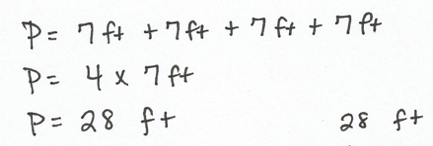 P= 7 ft + 7 ft + 7 ft + 7 ft
P= 4 x 7 ft
P= 28 ft 28 ft